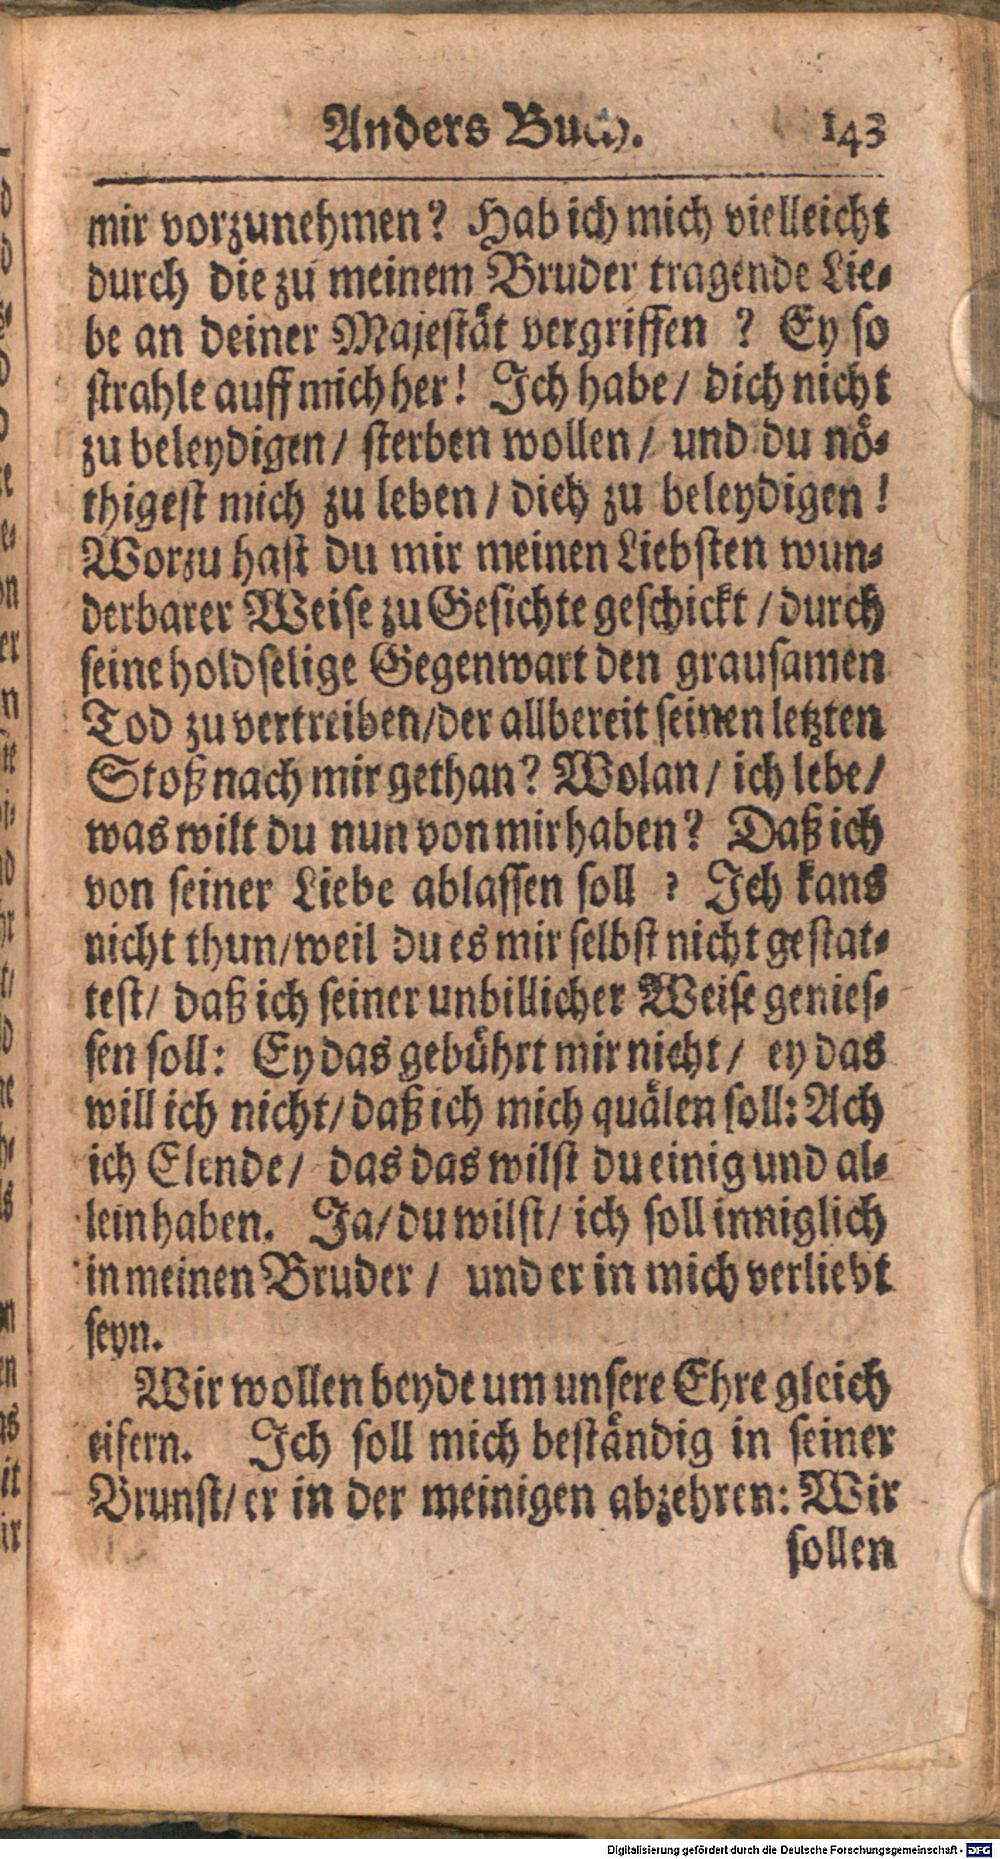 Anders Buch. 143
mir vorzunehmen? Hab ich mich vielleicht
durch die zu meinem Bruder tragende Lie-
be an deiner Majestät vergriffen ? Ey so
strahle auff mich her! Ich habe/ dich nicht
zu beleydigen/ sterben wollen/ und du nö-
thigest mich zu leben/ dich zu beleydigen!
Worzu hast du mir meinen Liebsten wun-
derbarer Weise zu Gesichte geschickt/ durch
seine holdselige Gegenwart den grausamen
Tod zu vertreiben/der allbereit seinen letzten
Stoß nach mir gethan? Wolan/ ich lebe/
was wilt du nun von mir haben? Daß ich
von seiner Liebe ablassen soll ? Ich kans
nicht thun/weil du es mir selbst nicht gestat-
test/ daß ich seiner unbillicher Weise genies-
sen soll: Ey das gebührt mir nicht/ ey das
will ich nicht/daß ich mich quälen soll: Ach
ich Elende/ das das wilst du einig und al-
lein haben. Ja/du wilst/ ich soll inniglich
in meinen Bruder/ und er in mich verliebt
seyn.
Wir wollen beyde um unsere Ehre gleich
eifern. Ich soll mich beständig in seiner
Brunst/er in der meinigen abzehren: Wir
sollen
Digitalisierung gefördert durch die Deutsche Forschungsgemeinschaft - DFG